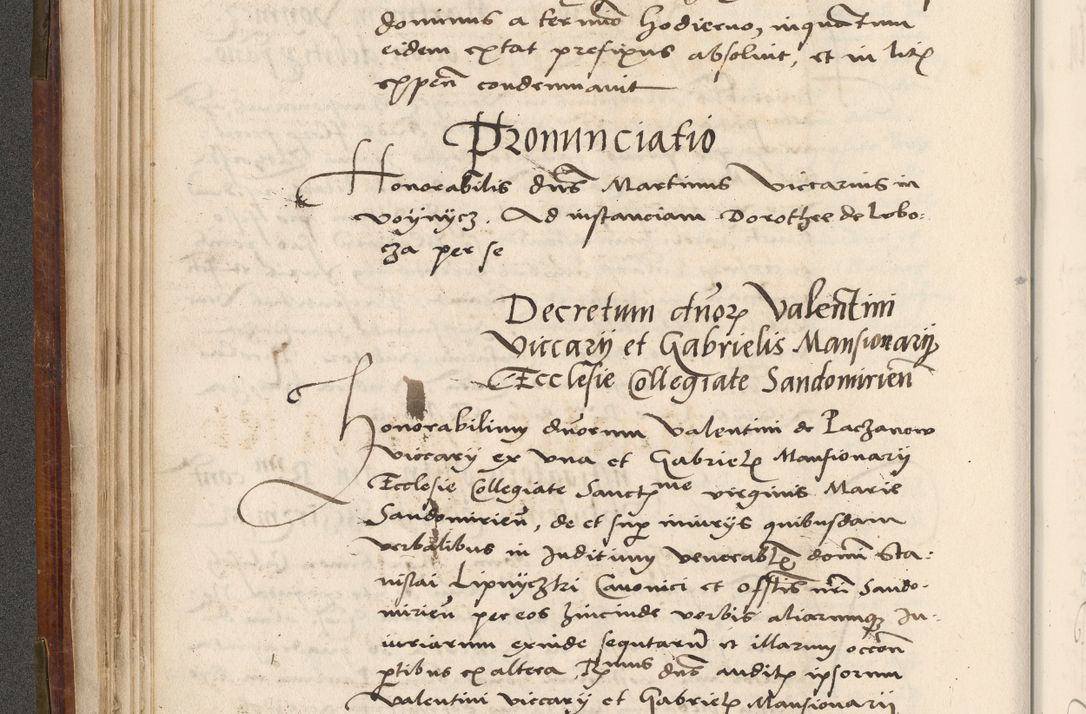 dominus a termino hodierno, inquantum
eidem extat prefixus absoluit, et in litis
expen̄ condemnauit
Pronunciatio
Honorabilis dn̄s Martinus viccarius in
voÿnÿcz. Ad instanciam Dorothee de Lobo:
cza per se
Decretum dn̄orꝝ Valentini
viccarij et Gabrielis Mansionarij
Ecclesie Collegiate Sandomirien̄
Honorabilium dnorum Valentini de Paczanow
viccarij ex vna et Gabrielis Mansionarij
Ecclesie Collegiate Sanctme virginis Marie
Sandomirien̄, de et sup iniurijs quibusdam
verbalibus in Juditium venerabilis domi Sta:
nislai Lipnyczki Canonici et offitis nr̄i Sando-
mirien̄ per eos hincinde verbis aliarumqꝫ In-
iuriarum exinde sequtarū et illarum occōn
ptibus ex altera, Rmus dn̄s auditis ipsorum
Valentini viccarij et Gabrielis Mansionarij